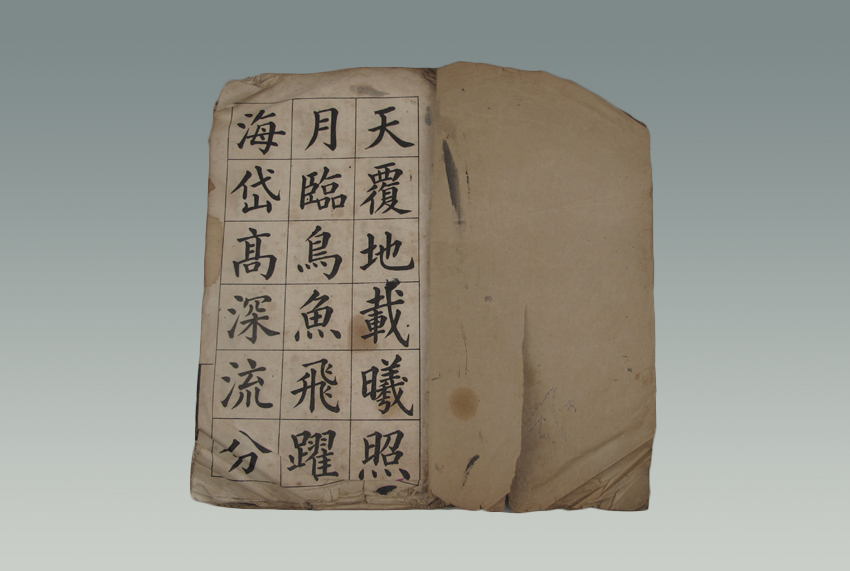 天覆地載曦照
月臨鳥魚飛躍
海岱高深流分